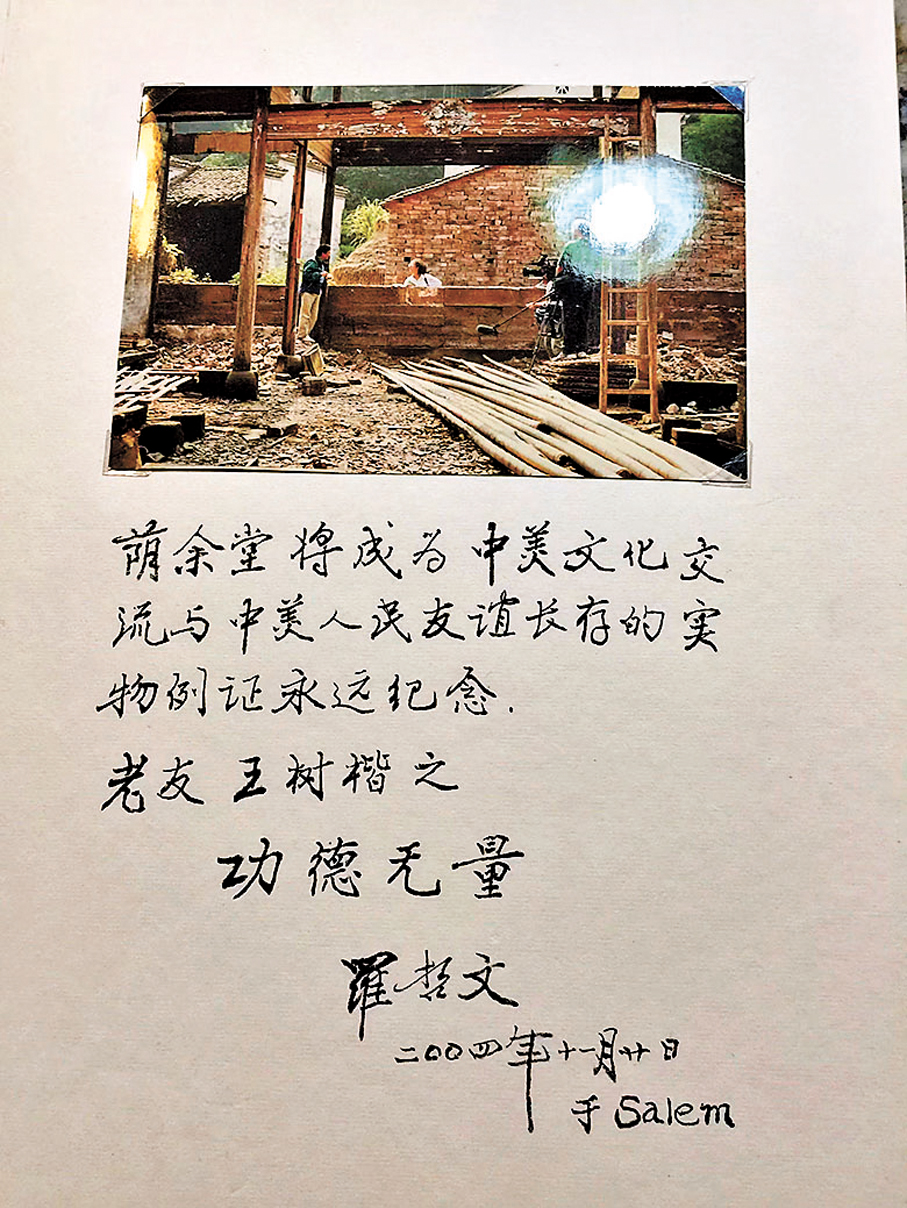 荫余堂将成为中美文化交
流与中美人民友谊长存的实
物例证永远纪念.
老友 王树楷之
功德无量
羅哲文
二〇〇四年十一月廿日
于 Salem